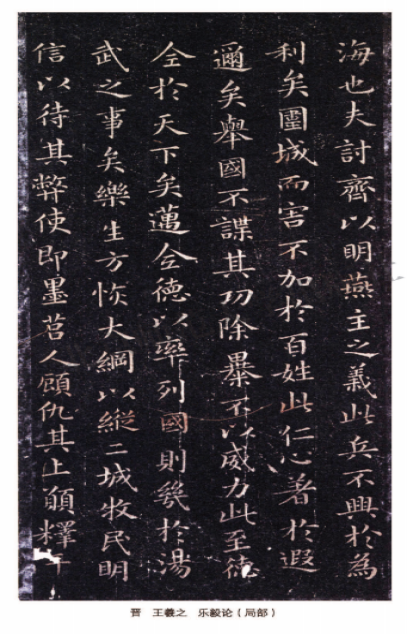 海也夫討齊以明燕主之義此兵不興於為
利矣圍城而害不加於百姓此仁心著於遐
邇矣舉國不謀其功除暴不以威力此至德
全於天下矣邁全德以率列國則幾於湯
武之事矣樂生方恢大綱以縱二城牧民明
信以待其弊使即墨莒人顧仇其上願釋
晋 王羲之 乐毅论（局部）